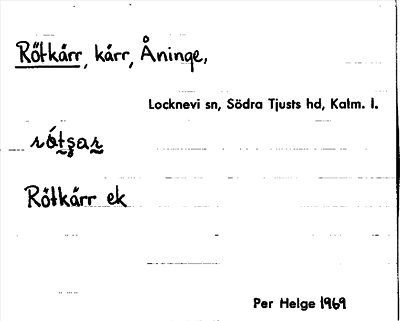 Rötkärr, kärr, Åninge,
Locknevi sn, Södra Tjusts hd, Kalm. l.
Rötkärr ek
Per Helge 1969